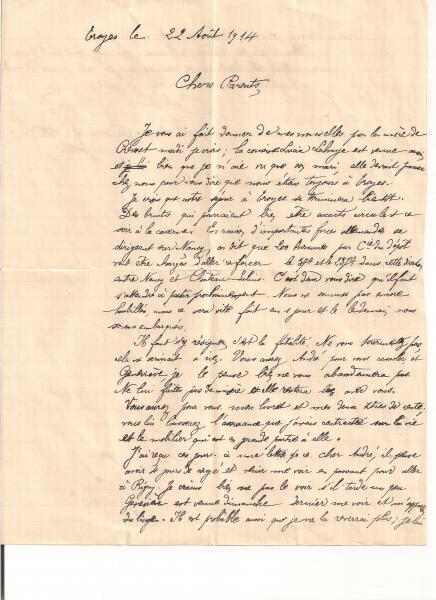 Troyes le 22 Août 1914
Chers Parents
Je vous ai fait donner de mes nouvelles par la mère de
mardi je crois ; la cousine Lucie est venue aussi
bien que je n'aie vu que son mari elle devait passer
chez nous pour vous dire que nous étions toujours à Troyes.
Je crois que notre séjour à Troyes se terminera bientôt.
Des bruits qui pourraient bien être exacts circulent ce
soir à la caserne. En raison d'importantes forces allemandes se
dirigeant sur Nancy, on dit que 200 hommes par Cie du dépôt
vont être chargés d'aller renforcer le et le dans cette
entre Nancy et Château Salins. C'est donc vous dire qu'il faut
s'attendre à partir prochainement. Nous ne sommes pas encore
habillés mais ce sera vite fait en 1 jour et le lendemain nous
serons embarqués.
Il faut s'y résigner c'est la fatalité. Ne vous tourmentez pas
cela ne servirait à rien. Vous aurez André pour vous consoler et
Geneviève je le pense bien ne vous abandonnera pas.
Ne lui faites pas de misère et elle restera bien avec vous.
Vous aurez pour vous mon livret et mes deux titres de rente,
vous lui laisserez l'assurance que j'avais contractée sur la vie
et le mobilier qui est en grande partie à elle.
J'ai reçu ces jours-ci une lettre de ce cher André, il pense
avoir 4 jours de congé et venir me voir en passant pour aller
à Rigny. Je crains bien ne pas le voir s'il tarde un peu
Geneviève est venue dimanche dernier me voir et m'apporter
du linge. Il est probable aussi que je ne la reverrai plus ; je lui